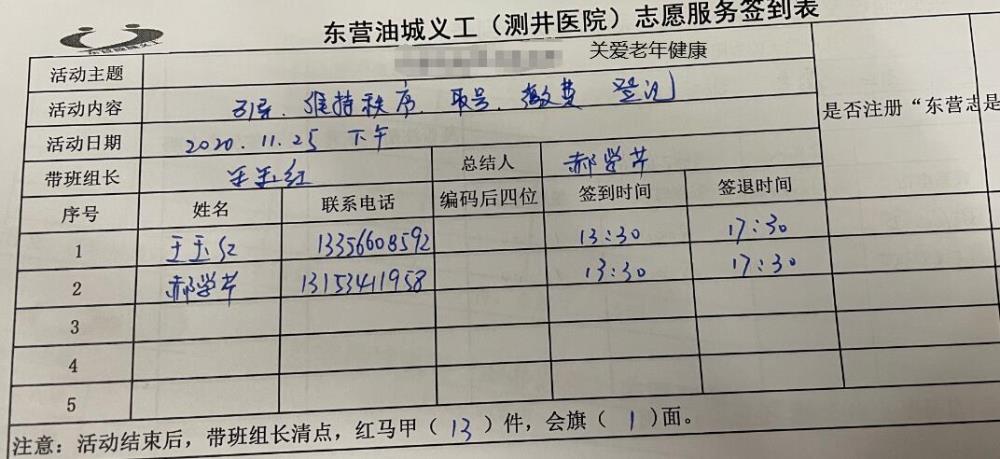 东营油城义工
东营油城义工（测井医院）志愿服务签到表
活动主题 关爱老年健康
活动内容 引导、维持秩序、取号、缴费 登记
活动日期 2020.11.25 下午
是否注册“东营志 是
带班组长 王玉红 总结人 郝学芹
序号 姓名 联系电话 编码后四位 签到时间 签退时间
1 王玉红 13356608592 13:30 17:30
2 郝学芹 13153411958 13:30 17:30
3
4
5
注意：活动结束后，带班组长清点，红马甲（ 13 ）件，会旗（ 1 ）面。